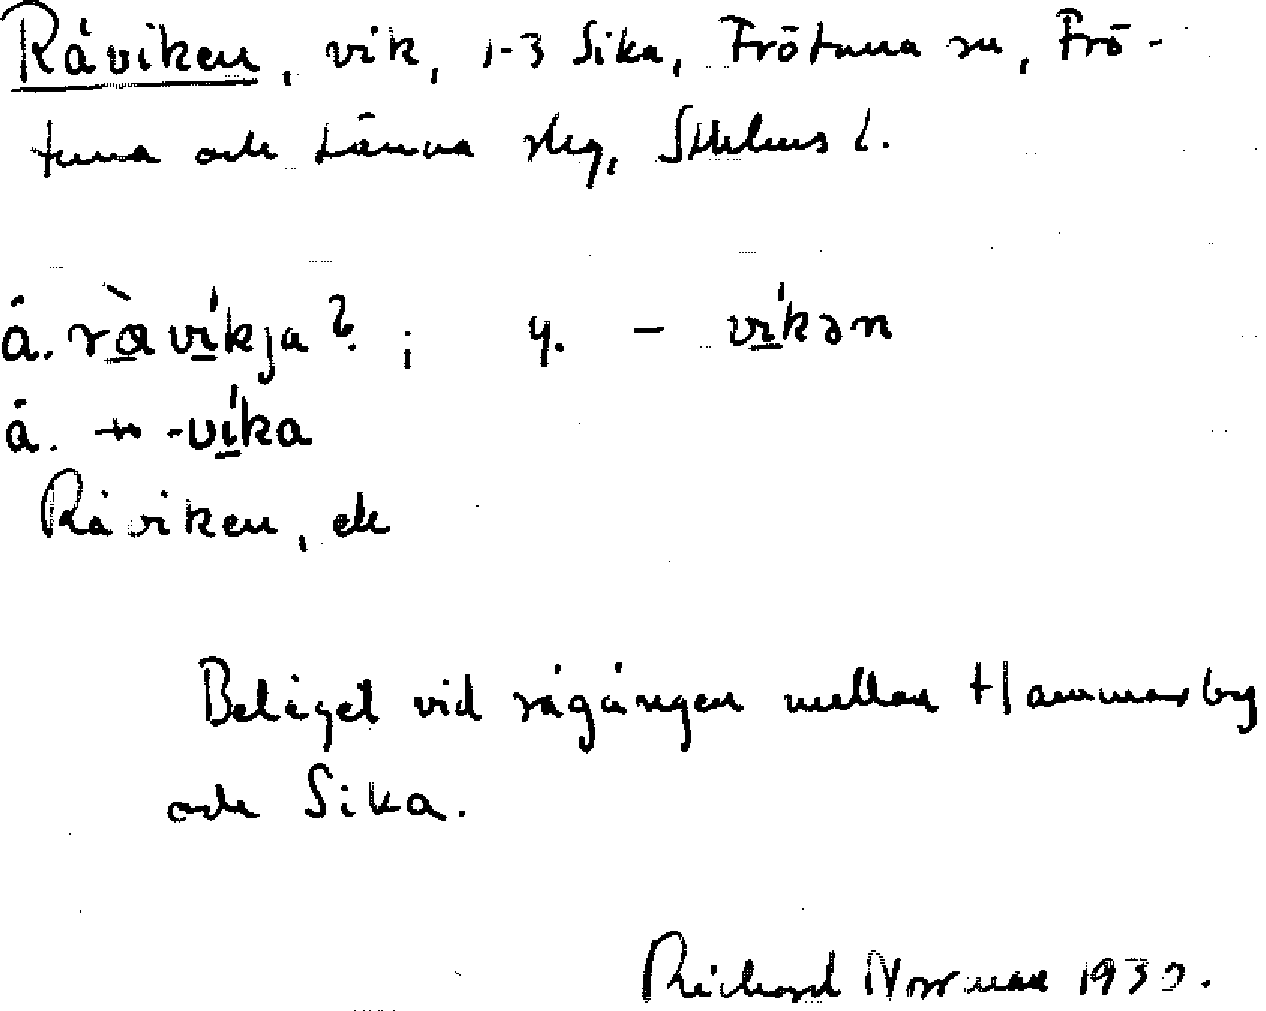 Råviken, vik, 1-3 Sika, Frötuna sn, Frö-
tuna och Länna skg, Sthlms l.
å. rà̱vi̱kja?; y. – vi̱kən
å. -vi̱ka
Råviken, ek
Beläget vid rågången mellan Hammarby
och Sika.
Richard Norrman 1930.